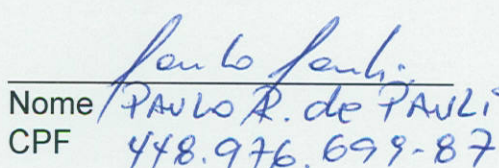 Paulo Pauli
Nome PAULO R. de PAULI
CPF 448.976.699-87